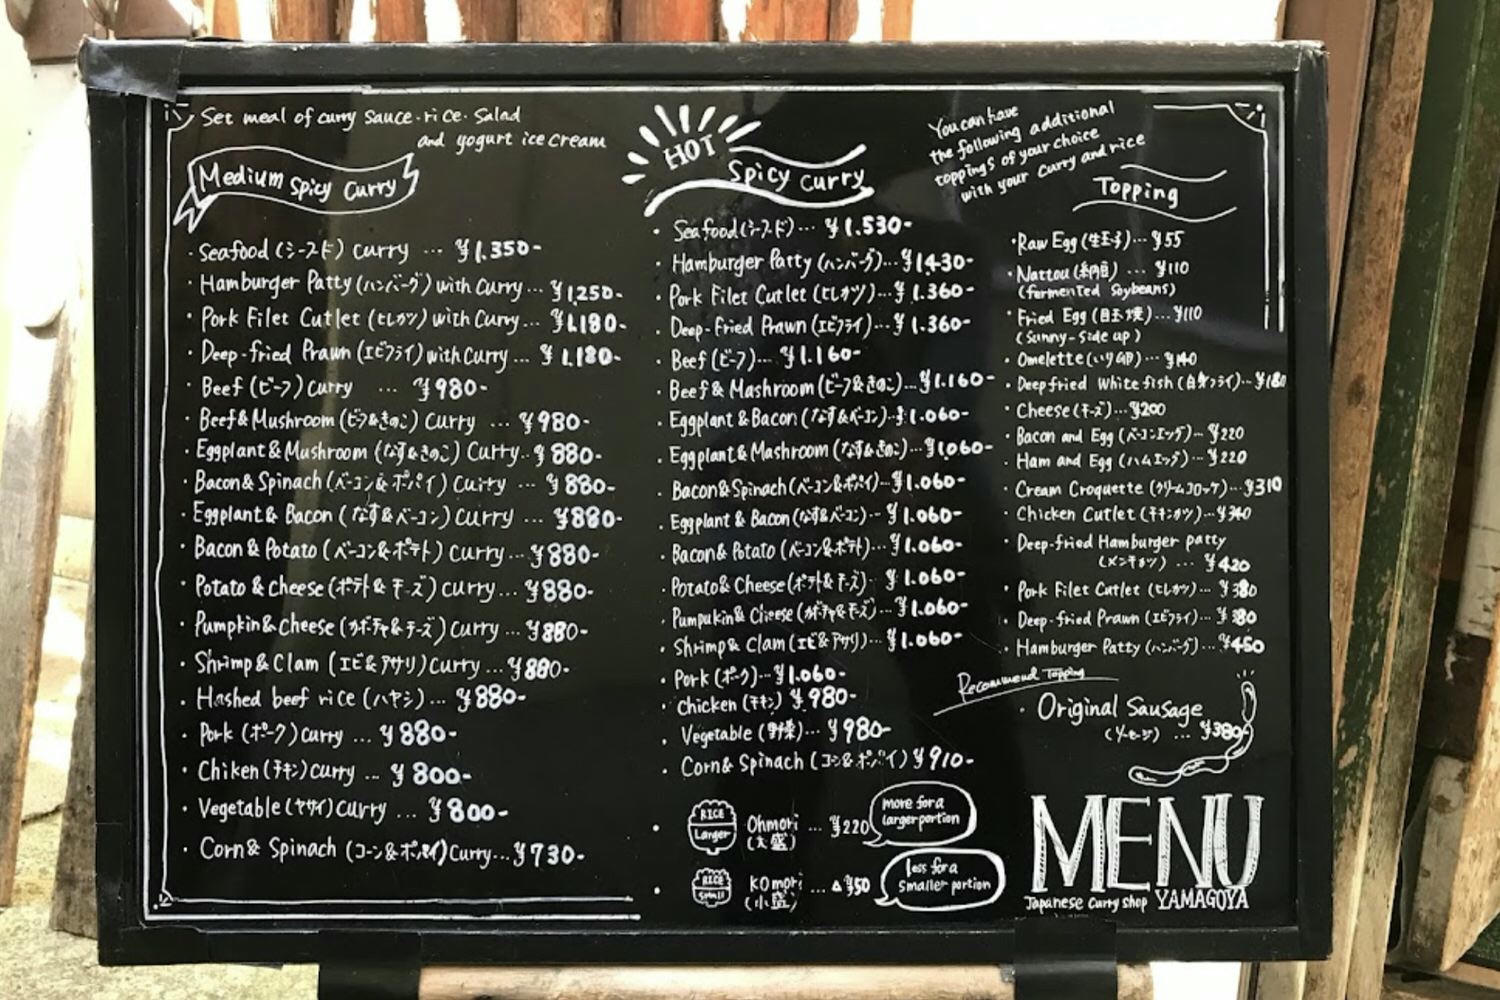 Set meal of curry sauce・rice・salad
and yogurt ice cream
Medium Spicy Curry
・Seafood (シーフード) Curry … ¥1.350-
・Hamburger Patty (ハンバーグ) with Curry … ¥1,250-
・Pork Filet Cutlet (ヒレカツ) with Curry … ¥1.180-
・Deep-fried Prawn (エビフライ) with Curry … ¥1,180-
・Beef (ビーフ) Curry … ¥980-
・Beef & Mushroom (ビーフ&きのこ) Curry … ¥980-
・Eggplant & Mushroom (なす&きのこ) Curry … ¥880-
・Bacon & Spinach (ベーコン&ポパイ) Curry … ¥880-
・Eggplant & Bacon (なす&ベーコン) Curry … ¥880-
・Bacon & Potato (ベーコン&ポテト) Curry … ¥880-
・Potato & cheese (ポテト&チーズ) Curry … ¥880-
・Pumpkin & cheese (カボチャ&チーズ) Curry … ¥880-
・Shrimp & Clam (エビ&アサリ) Curry … ¥880-
・Hashed beef rice (ハヤシ) … ¥880-
・Pork (ポーク) Curry … ¥880-
・Chiken (チキン) Curry … ¥800-
・Vegetable (ヤサイ) Curry … ¥800-
・Corn & Spinach (コーン&ポパイ) Curry … ¥730-
HOT
Spicy Curry
・Seafood (シーフード) … ¥1.530-
・Hamburger Patty (ハンバーグ) … ¥1430-
・Pork Filet Cutlet (ヒレカツ) … ¥1.360-
・Deep-Fried Prawn (エビフライ) … ¥1.360-
・Beef (ビーフ) … ¥1.160-
・Beef & Mashroom (ビーフ&きのこ) … ¥1.160-
・Eggplant & Bacon (なす&ベーコン) … ¥1.060-
・Eggplant & Mashroom (なす&きのこ) … ¥1,060-
・Bacon & Spinach (ベーコン&ポパイ) … ¥1.060-
・Eggplant & Bacon (なす&ベーコン) … ¥1.060-
・Bacon & Potato (ベーコン&ポテト) … ¥1.060-
・Potato & Cheese (ポテト&チーズ) … ¥1.060-
・Pumpukin & Cheese (カボチャ&チーズ) … ¥1.060-
・Shrimp & Clam (エビ&アサリ) … ¥1.060-
・Pork (ポーク) … ¥1.060-
・Chicken (チキン) ¥980-
・Vegetable (野菜) … ¥980-
・Corn & Spinach (コーン&ポパイ) ¥910-
・RICE
Larger
Ohmori … ¥220
(大盛)
more for a
larger portion
・RICE
Small
Komori … △¥50
(小盛)
less for a
smaller portion
You can have
the following additional
toppings of your choice
with your curry and rice
Topping
・Raw Egg (生玉子) … ¥55
・Nattou (納豆) … ¥110
(fermented Soybeans)
・Fried Egg (目玉焼) … ¥110
(Sunny-side up)
・Omelette (いり卵) … ¥140
・Deepfried White fish (白身フライ) … ¥180
・Cheese (チーズ) … ¥200
・Bacon and Egg (ベーコンエッグ) … ¥220
・Ham and Egg (ハムエッグ) … ¥220
・Cream Croquette (クリームコロッケ) … ¥310
・Chicken Cutlet (チキンカツ) … ¥340
・Deep-fried Hamburger patty
(メンチカツ) … ¥420
・Pork Filet Cutlet (ヒレカツ) … ¥380
・Deep-fried Prawn (エビフライ) … ¥380
・Hamburger Patty (ハンバーグ) … ¥450
Recommend Topping
・Original Sausage
… ¥380-
MENU
Japanese Curry shop YAMAGOYA